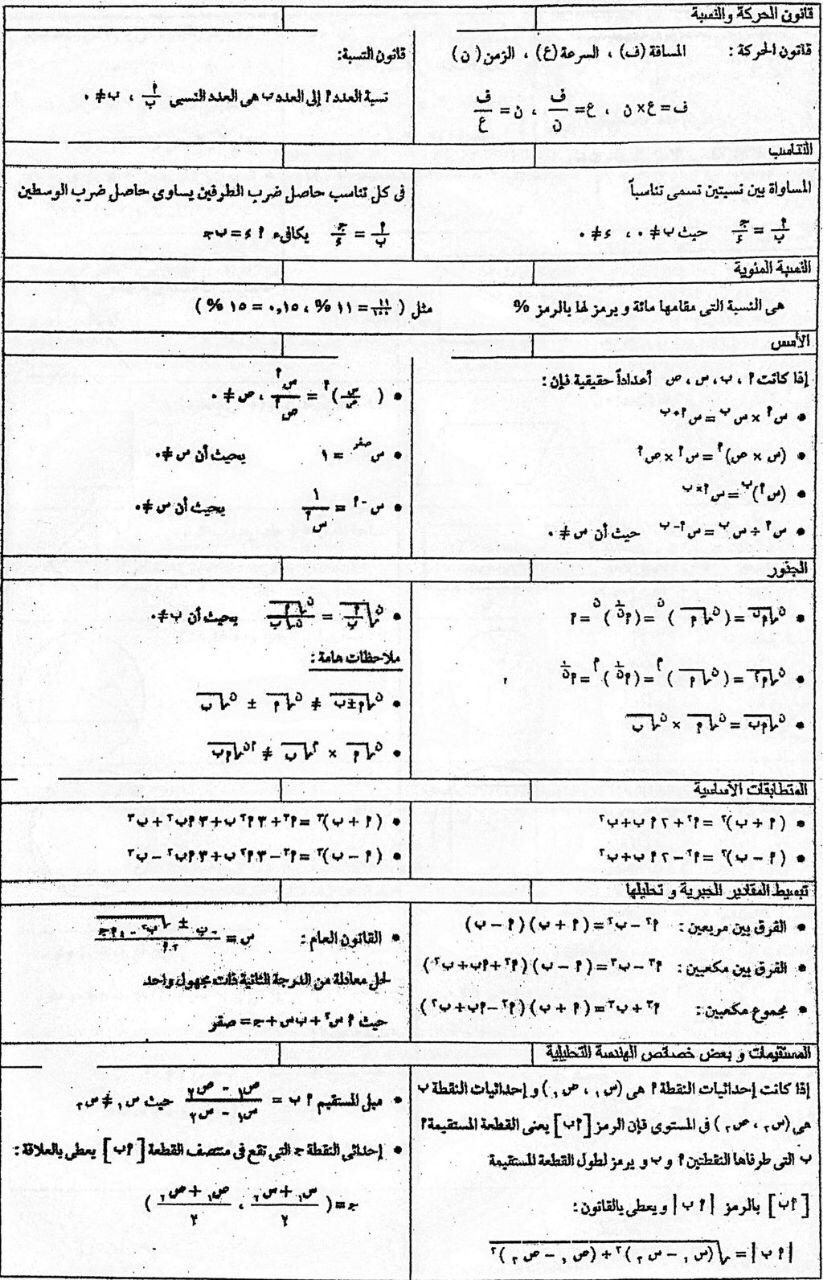 قانون الحركة والنسبة
قانون الحركة : المسافة (ف) ، السرعة (ع) ، الزمن ( ن )
ف = ع × ن ، ع = ف/ن ، ن = ف/ع
قانون النسبة:
نسبة العدد أ إلى العدد ب هى العدد النسبى أ/ب ، ب ≠ ٠
التناسب
المساواة بين نسبتين تسمى تناسباً
أ/ب = جـ/ء حيث ب ≠ ٠ ، ء ≠ ٠
فى كل تناسب حاصل ضرب الطرفين يساوى حاصل ضرب الوسطين
أ/ب = جـ/ء يكافىء أ ء = ب جـ
النسبة المئوية
هى النسبة التى مقامها مائة و يرمز لها بالرمز % مثل ( ١١/١٠٠ = ١١ % ، ٠,١٥ = ١٥ % )
الأسس
إذا كانت أ ، ب ، س ، ص أعداداً حقيقية فإن :
• س^أ × س^ب = س^(أ+ب)
• (س × ص)^أ = س^أ × ص^أ
• (س^أ)^ب = س^(أ×ب)
• س^أ ÷ س^ب = س^(أ-ب) حيث أن س ≠ ٠
• (س/ص)^أ = س^أ/ص^أ ، ص ≠ ٠
• س^صفر = ١ بحيث أن س ≠ ٠
• س^-أ = ١/س^أ بحيث أن س ≠ ٠
الجذور
• ن√(أ^ن) = (ن√أ)^ن = (أ^(١/ن))^ن = أ
• ن√أ٢ = (ن√أ)^أ = (أ^(١/ن))^أ = أ^(أ/ن)
• ن√(أب) = ن√أ × ن√ب
• ن√(أ/ب) = ن√أ/ن√ب بحيث أن ب ≠ ٠
ملاحظات هامة :
• ن√(أ±ب) ≠ ن√أ ± ن√ب
• ن√أ × م√ب ≠ من√(أب)
المتطابقات الأساسية
• ( أ + ب )² = أ² + ٢ أ ب + ب²
• ( أ - ب )² = أ² - ٢ أ ب + ب²
• ( أ + ب )³ = أ³ + ٣ أ² ب + ٣ أ ب² + ب³
• ( أ - ب )³ = أ³ - ٣ أ² ب + ٣ أ ب² - ب³
تبسيط المقادير الجبرية و تحليلها
• الفرق بين مربعين : أ² - ب² = ( أ + ب ) ( أ - ب )
• الفرق بين مكعبين : أ³ - ب³ = ( أ - ب ) ( أ² + أب + ب² )
• مجموع مكعبين : أ³ + ب³ = ( أ + ب ) ( أ² - أب + ب² )
• القانون العام : س = (-ب ± √(ب² - ٤أجـ))/٢أ
لحل معادلة من الدرجة الثانية ذات مجهول واحد
حيث أ س² + ب س + جـ = صفر
المستقيمات و بعض خصائص الهندسة التحليلية
إذا كانت إحداثيات النقطة أ هى (س١ ، ص١) و إحداثيات النقطة ب
هى (س٢ ، ص٢) فى المستوى فإن الرمز [أب] يعنى القطعة المستقيمة أ
ب التى طرفاها النقطتين أ و ب و يرمز لطول القطعة المستقيمة
[أب] بالرمز |أ ب| و يعطى بالقانون :
|أ ب| = √((س١ - س٢)² + (ص١ - ص٢)²)
• ميل المستقيم أ ب = (ص١ - ص٢)/(س١ - س٢) حيث س١ ≠ س٢
• إحداثى النقطة جـ التى تقع فى منتصف القطعة [أب] يعطى بالعلاقة :
جـ = ( (س١ + س٢)/٢ ، (ص١ + ص٢)/٢ )